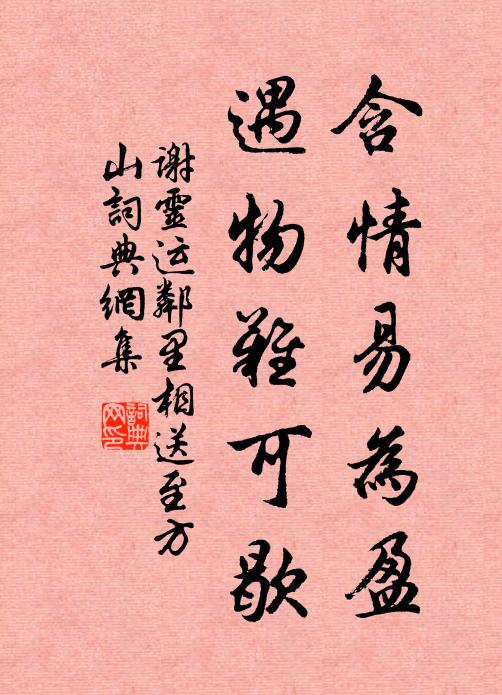 含情易為盈
遇物難可歇
謝靈运鄰里相送至方
山詞典網集
詞典
网印